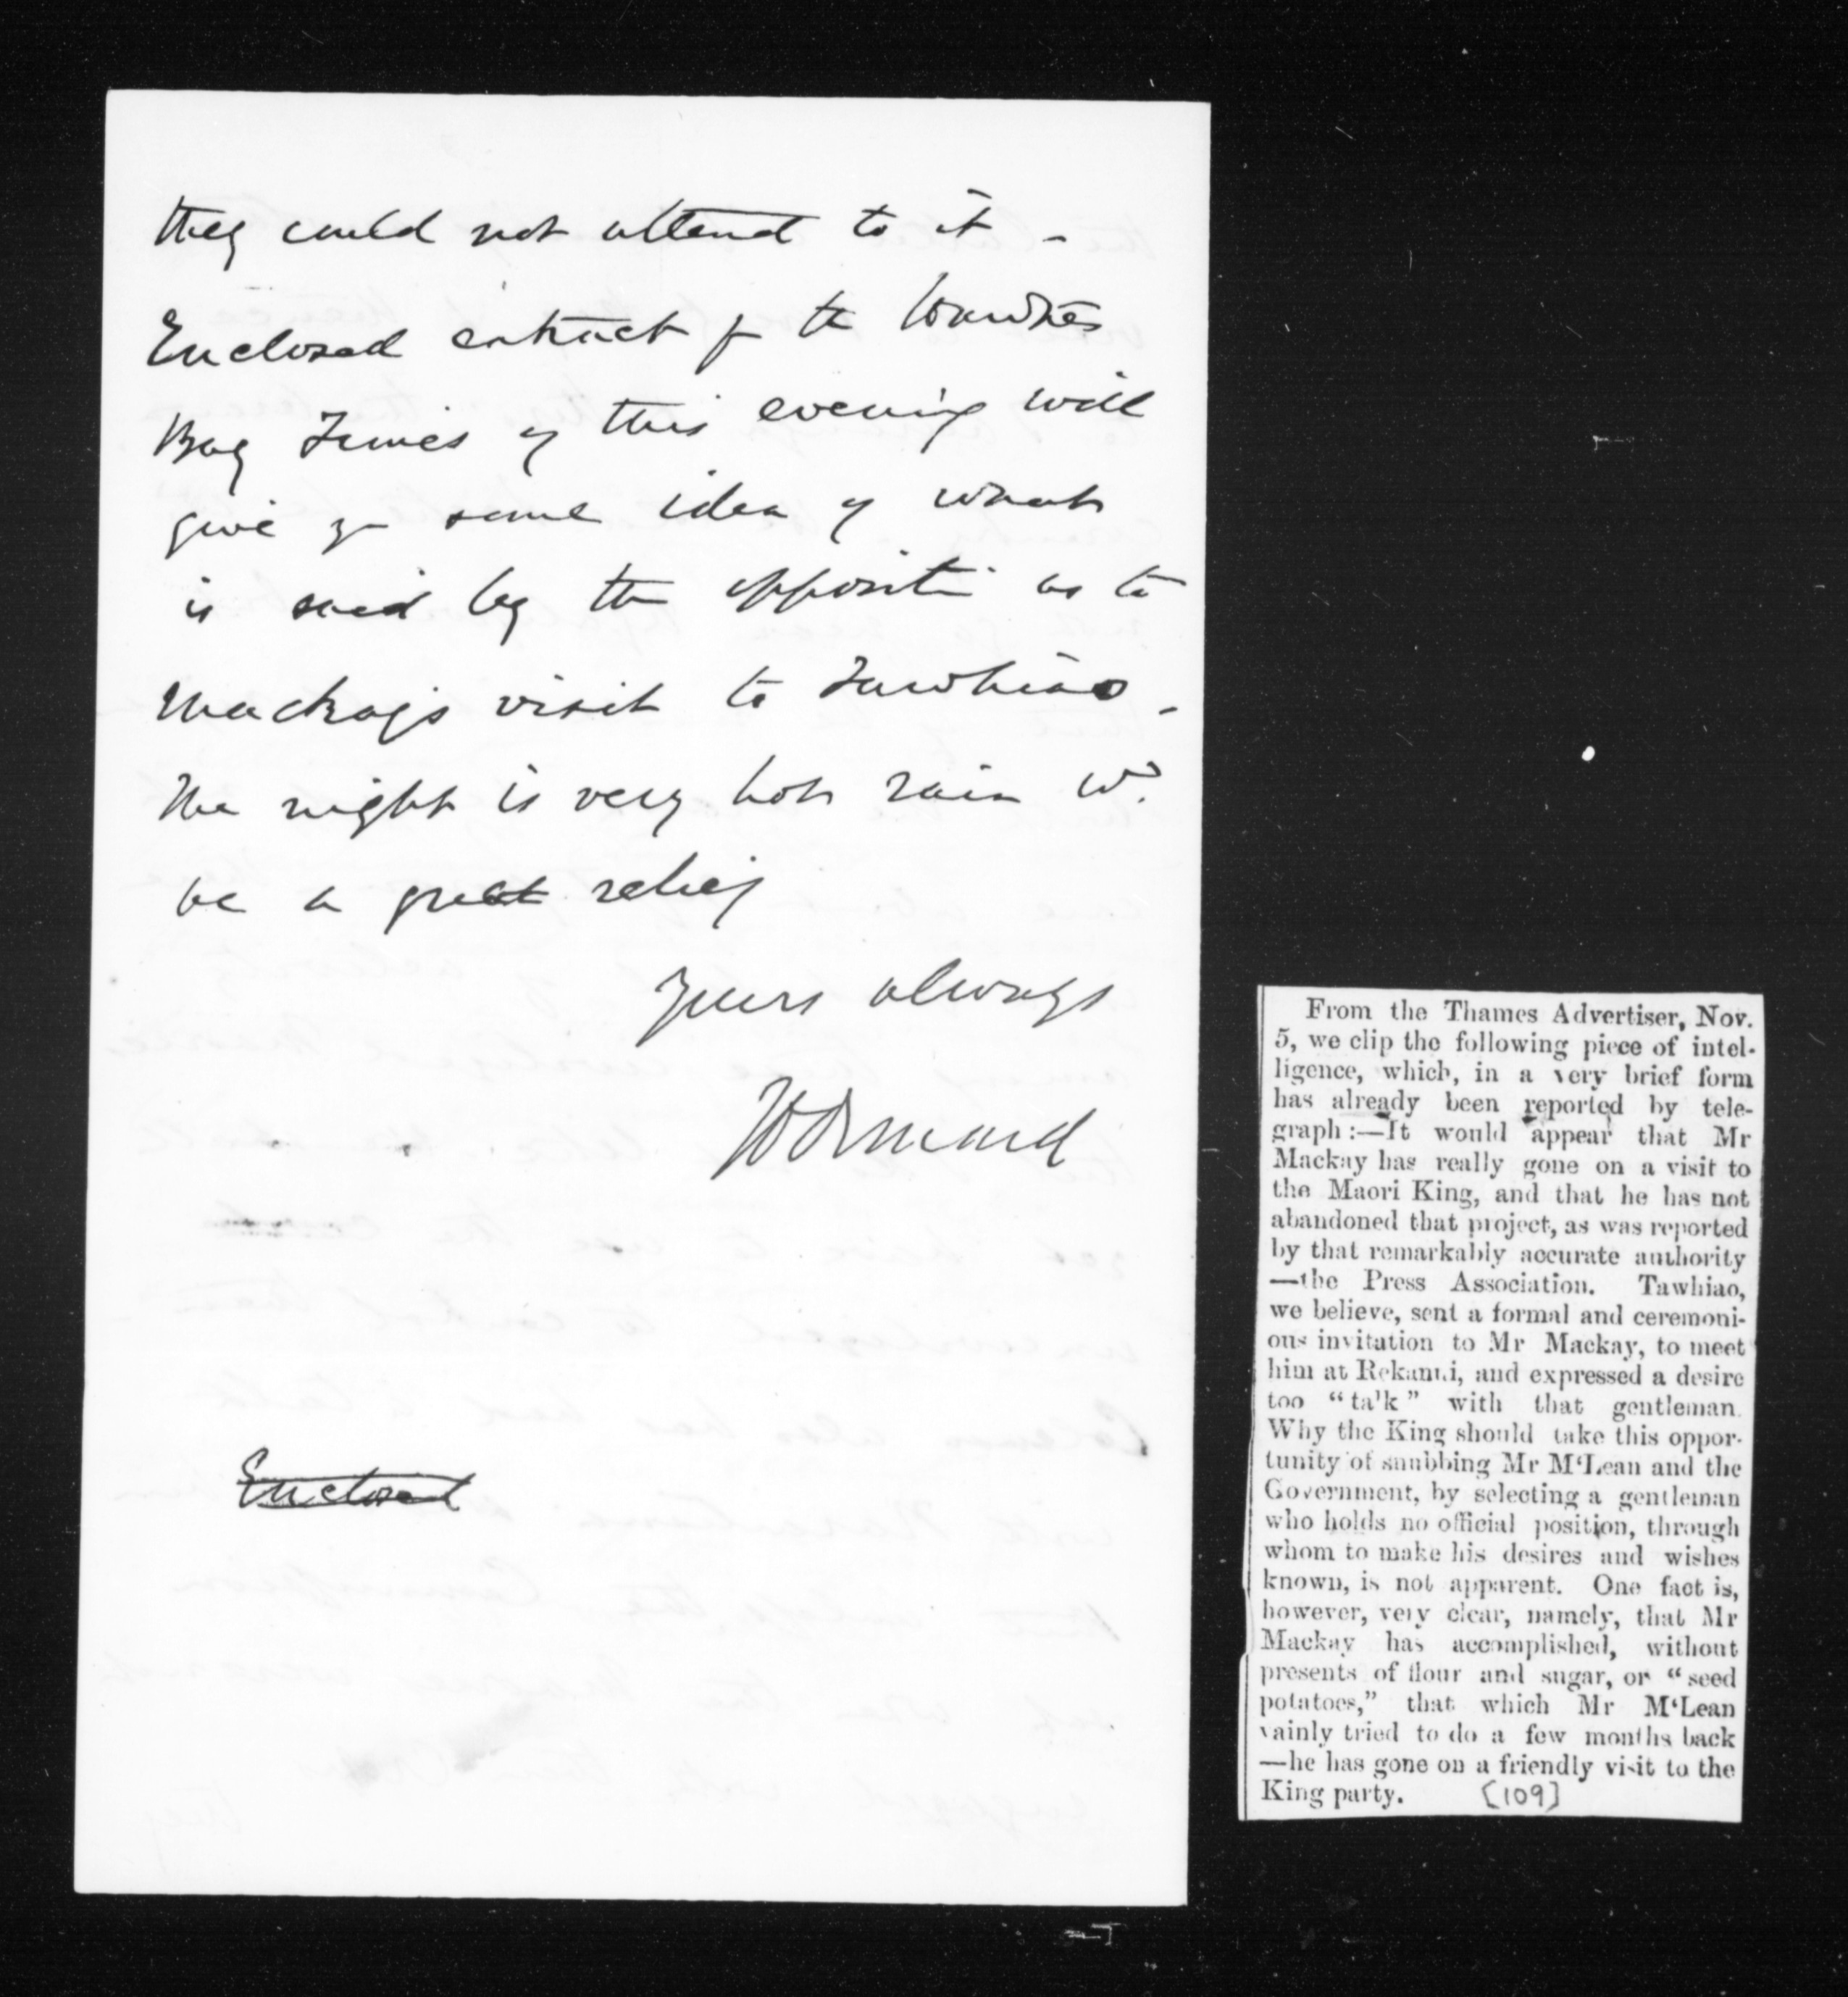 they could not attend to it -
Enclosed extract fr the Hawkes
Bay Times of this evening will
give yr some idea of what
is said by the oppositn as to
Mackay's visit to Tawhiao -
The night is very hot rain wd.
be a great relief
Yours always
JD Ormond
Enclosed
From the Thames Advertiser, Nov.
5, we clip the following piece of intel-
ligence, which, in a very brief form
has already been reported by tele-
graph :—It would appear that Mr
Mackay has really gone on a visit to
the Maori King, and that he has not
abandoned that project, as was reported
by that remarkably accurate authority
—the Press Association. Tawhiao,
we believe, sent a formal and ceremoni-
ous invitation to Mr Mackay, to meet
him at Rekanui, and expressed a desire
too “talk” with that gentleman.
Why the King should take this oppor-
tunity of snubbing Mr M‘Lean and the
Government, by selecting a gentleman
who holds no official position, through
whom to make his desires and wishes
known, is not apparent. One fact is,
however, very clear, namely, that Mr
Mackay has accomplished, without
presents of flour and sugar, or “seed
potatoes,” that which Mr M‘Lean
vainly tried to do a few months back
—he has gone on a friendly visit to the
King party. [109]